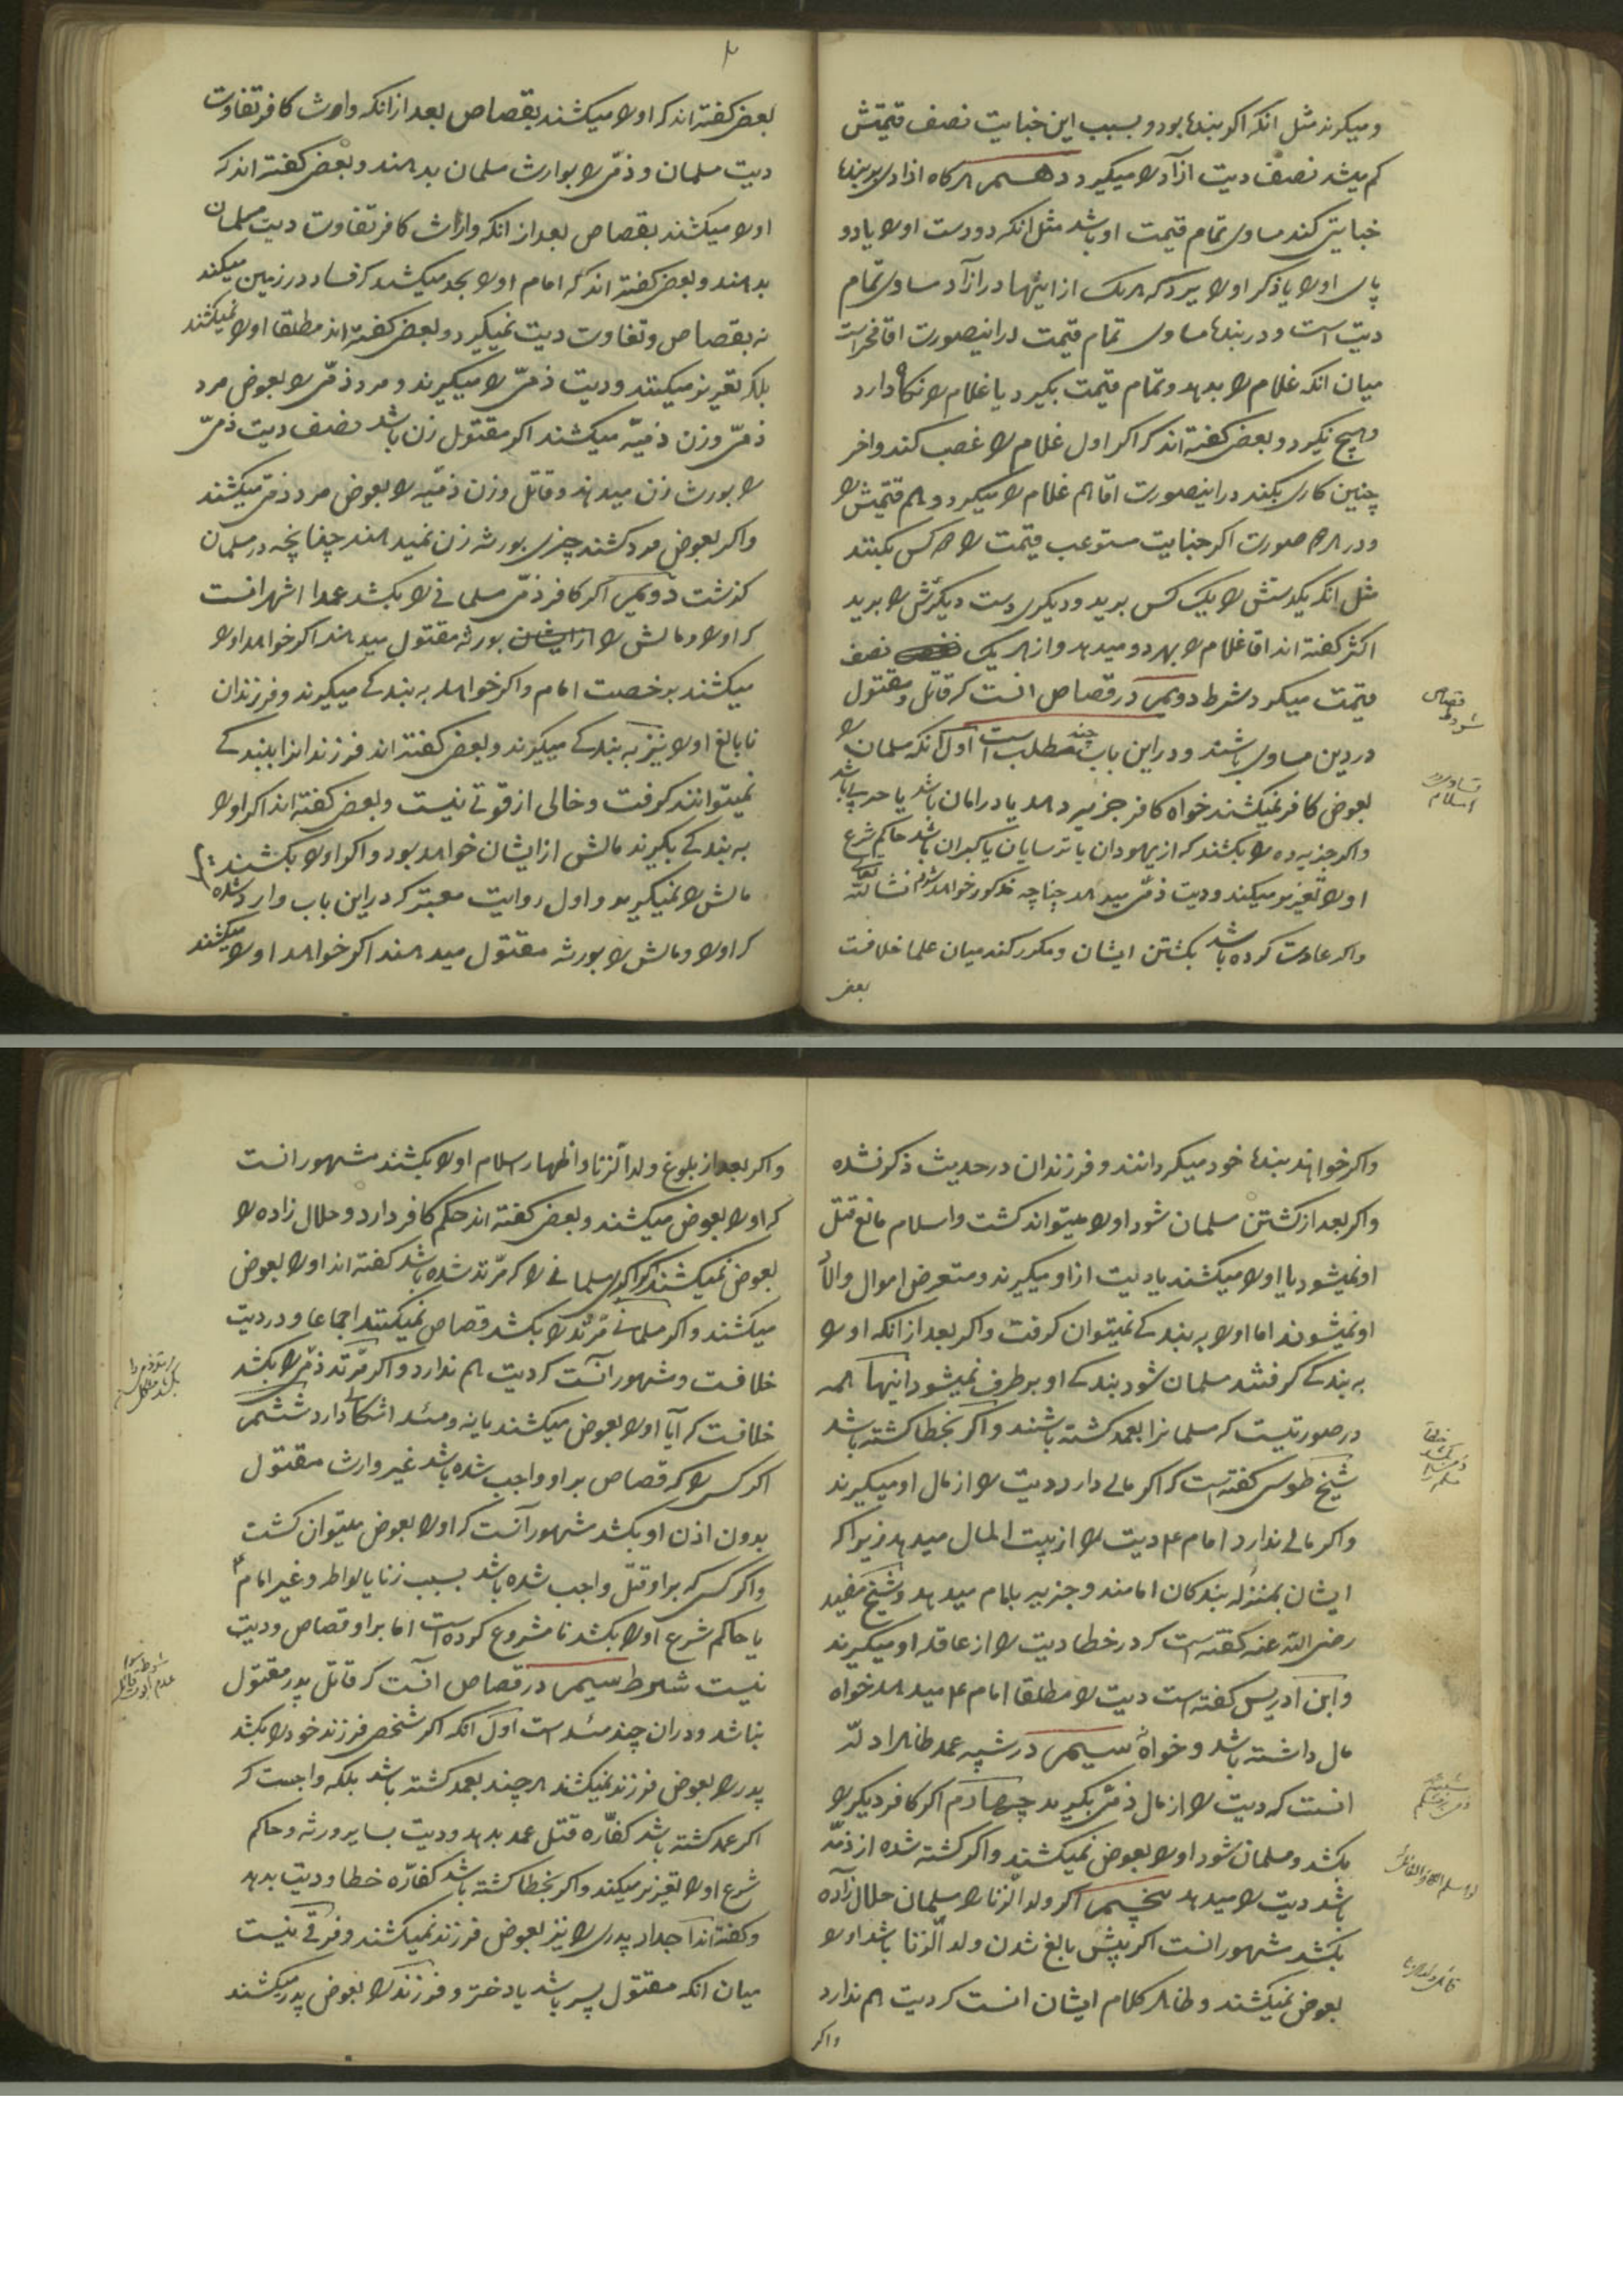 و میگیرند مثل انکه اکر بنده بود و بسبب این جنایت نصف قیمتش
کم میشد نصف دیت ازآد را میگیرد دهم هرکاه ازادی بر بنده
جنایتی کند مساوی تمام قیمت او باشد مثل انکه دو دست او را یا دو
پای او را یا ذکر او را ببرد که هر یک از اینها در ازآد مساوی تمام
دیت است و در بنده مساوی تمام قیمت در اینصورت اقا مخیر است
میان انکه غلام را بدهد و تمام قیمت بکیرد یا غلام را نکاه دارد
و هیچ نکیرد و بعضی کفته اند که اکر اول غلام را غصب کند و اخر
چنین کاری بکند در اینصورت اقا هم غلام را میکیرد و هم قیمتش را
و در هر صورت اکر جنایت مستوعب قیمت را دو کس بکنند
مثل انکه یکدستش را یک کس برید و دیکری دست دیکرش را برید
اکثر کفته اند اقا غلام را بهر دو میدهد و از هر یک نصف
قیمت میکیرد شرط دویم در قصاص انست که قاتل و مقتول
در دین مساوی باشند و در این باب چند مطلب است اول آنکه مسلمان را
بعوض کافر نمیکشند خواه کافر جزیه دهد یا در امان باشد یا حربی باشد
و اکر جزیه ده را بکشند که از یهودان یا ترسایان یا کبران باشد حاکم شرع
او را تعزیر میکند و دیت ذمی میدهد چنانچه مذکور خواهد شد انشاالله تعالی
و اکر عادت کرده باشد بکشتن ایشان و مکرر کند میان علما خلافست
بعضی
قصاص
شروط
تساوی در
اسلام
بعضی کفته اند که او را میکشند بقصاص بعد از انکه وارث کافر تفاوت
دیت مسلمان و ذمی را بوارث مسلمان بدهند و بعضی کفته اند که
او را میکشند بقصاص بعد از انکه وارث کافر تفاوت دیت مسلمان
بدهند و بعضی کفته اند که امام او را بحد میکشد که فساد در زمین میکند
نه بقصاص و تفاوت دیت نمیکیرد و بعضی کفته اند مطلقا او را نمیکشند
بلکه تعزیر میکنند و دیت ذمی را میکیرند و مرد ذمی را بعوض مرد
ذمی و زن ذمیه میکشند اکر مقتول زن باشد نصف دیت ذمی
را بورثه زن میدهند و قاتل و زن ذمیه را بعوض مرد ذمی میکشند
و اکر بعوض مرد کشند چیزی بورثه زن نمیدهند چنانچه در مسلمان
کذشت دویم اکر کافر ذمی مسلمانی را بکشد عمدا اشهر انست
که او را و مالش را بورثه مقتول میدهند اکر خواهد او را
میکشند برخصت امام و اکر خواهد به بندکی میکیرند و فرزندان
نابالغ او را نیز به بندکی میکیرند و بعضی کفته اند فرزندانرا ببندکی
نمیتوانند کرفت و خالی از قوتی نیست و بعضی کفته اند اکر او را
به بندکی بکیرند مالش از ایشان خواهد بود و اکر او را بکشند
مالش را نمیکیرند و اول روایت معتبر که در این باب وارد شده
که او را و مالش را بورثه مقتول میدهند اکر خواهند او را میکشند
و اکر خواهند بنده خود میکردانند و فرزندان در حدیث ذکر نشده
و اکر بعد از کشتن مسلمان شود او را میتواند کشت و اسلام مانع قتل
او نمیشود یا او را میکشند یا دیت از او میکیرند و متعرض اموال و اولاد
او نمیشوند اما او را به بندکی نمیتوان کرفت و اکر بعد از انکه او را
به بندکی کرفتند مسلمان شود بندکی او برطرف نمیشود اینها همه
در صورتیست که مسلمانرا بعمد کشته باشند و اکر بخطا کشته باشد
شیخ طوسی کفته است که اکر مالی دارد دیت را از مال او میکیرند
و اکر مالی ندارد امام ع دیت را از بیت المال میدهد زیرا که
ایشان بمنزله بندکان امامند و جزیه بامام میدهند و شیخ مفید
رضی الله عنه کفته است که در خطا دیت را از عاقله او میکیرند
و ابن ادریس کفته است دیت را مطلقا امام ع میدهد خواه
مال داشته باشد و خواه نه سیم در شبیه عمد ظاهر ادله
انست که دیت را از مال ذمی بکیرند چهارم اکر کافر دیکر را
بکشد و مسلمان شود او را بعوض نمیکشند و اکر کشته شده از ذمه
باشد دیت را میدهد پنجم اکر ولد الزنا را مسلمان حلال زاده
بکشد مشهور انست اکر پیش بالغ شدن ولد الزنا باشد او را
بعوض نمیکشند و ظاهر کلام ایشان انست که دیت هم ندارد
و اکر
و اکر بعد از بلوغ ولد الزنا و اظهار اسلام او را بکشند مشهور انست
که او را بعوض میکشند و بعضی کفته اند حکم کافر دارد و حلال زاده را
بعوض نمیکشند و اکر مسلمانی را که مرتد شده باشد کفته اند او را بعوض
میکشند و اکر مسلمانی مرتد را بکشد قصاص نمیکنند اجماعا و در دیت
خلافست و مشهور آنست که دیت هم ندارد و اکر مرتد ذمی را بکشد
خلافست که آیا او را بعوض میکشند یا نه و مسئله اشکالی دارد ششم
اکر کسی را که قصاص بر او واجب شده باشد غیر وارث مقتول
بدون اذن او بکشد مشهور آنست که او را بعوض میتوان کشت
و اکر کسی که بر او قتل واجب شده باشد بسبب زنا یا لواطه و غیر امام ع
یا حاکم شرع او را بکشد نا مشروع کرده است اما بر او قصاص و دیت
نیست شرط سیم در قصاص آنست که قاتل پدر مقتول
نباشد و در ان چند مسئله است اول آنکه اکر شخصی فرزند خود را بکشد
پدر را بعوض فرزند نمیکشند هر چند بعمد کشته باشد بلکه واجبست که
اکر عمد کشته باشد کفاره قتل عمد بدهد و دیت بسایر ورثه و حاکم
شرع او را تعزیر میکند و اکر بخطا کشته باشد کفاره خطا و دیت بدهد
و کفته اند اجداد پدری را نیز بعوض فرزند نمیکشند و فرقی نیست
میان انکه مقتول پسر باشد یا دختر و فرزند را بعوض پدر میکشند